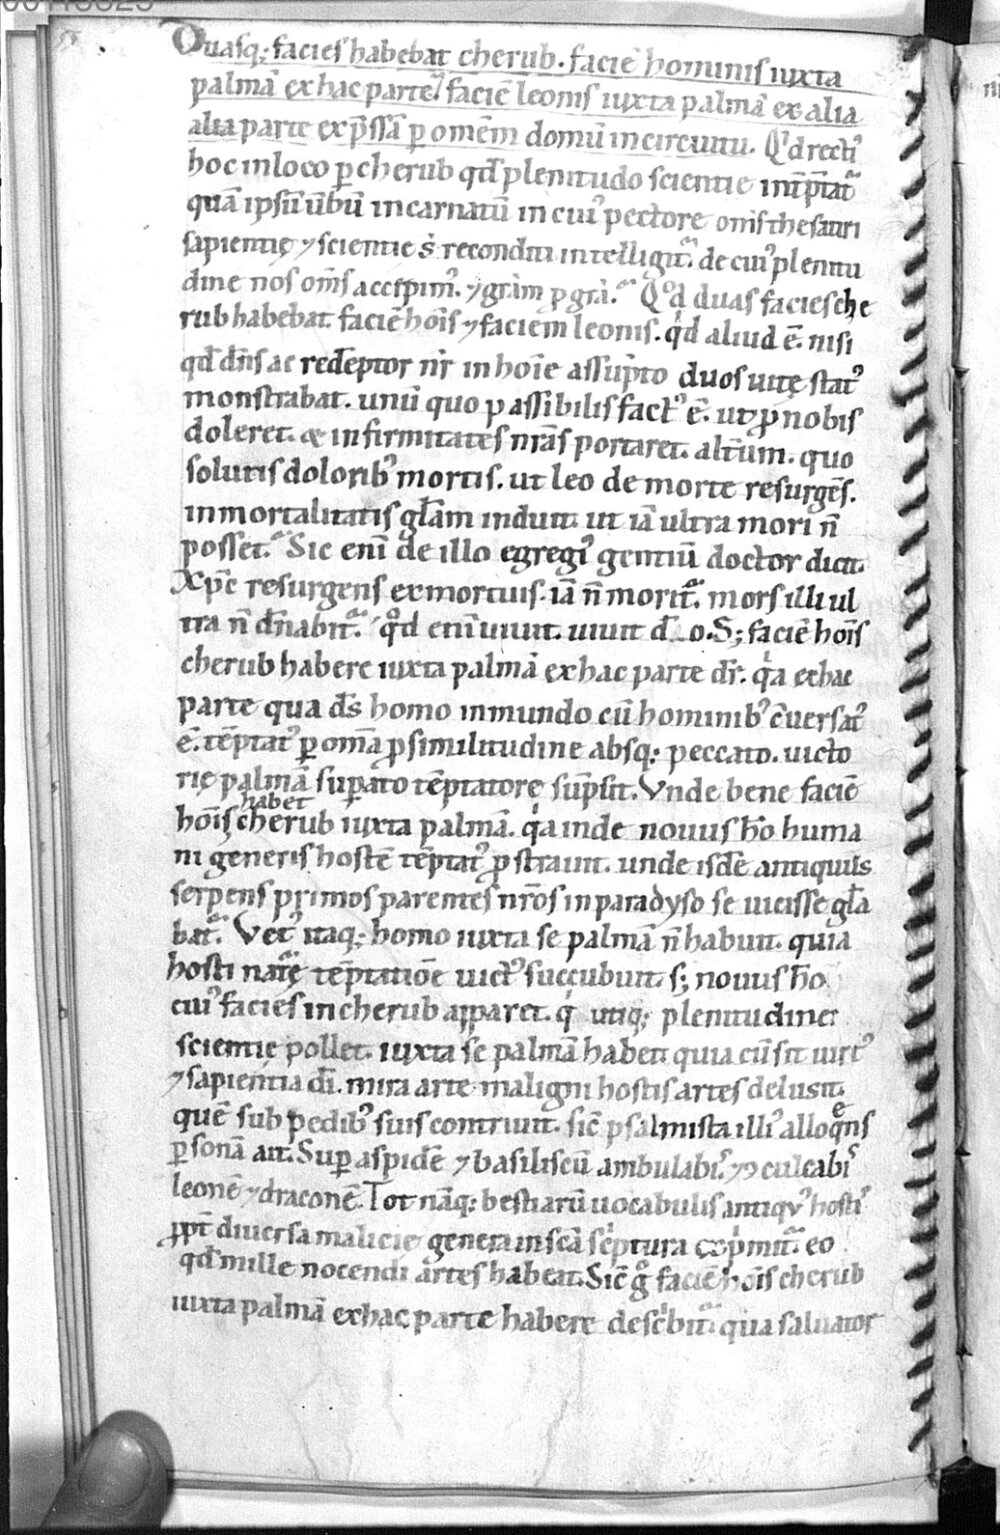 Duasq; facies habebat cherub. faciē hominis iuxta
palmā ex hac parte / faciē leonis iuxta palmā ex alia
alia parte exp̄ssā ꝑ omēm domū in circuitu. Qͥd recti᷒
hoc in loco ꝑ cherub qd̄ plenitudo scientie int̄p̄tat᷒
quā ip̄sū ūbū incarnatū in cui᷒ pectore om̄s thesauri
sapientię ⁊ scientie s̄ reconditi intelligit᷒. de cui᷒ plenitu
dine nos om̄s accipim᷒. ⁊ gr̄am ꝓ gr̄a. Qd̄ duas facies che
rub habebat. faciē hoīs ⁊ faciem leonis. qͥd aliud ē. nisi
qd̄ dn̄s ac redēptor nr̄ in hoīe assūpto duos uitę stat᷒
monstrabat. unū quo passibilis fact᷒ ē. ut ꝓ nobis
doleret. & infirmitates nr̄as portaret. alt̄um. quo
solutis dolorib᷒ mortis. ut leo de morte resurgēs.
inmortalitatis gl̄am induit. ut iā ultra mori n̄
posset. Sic enī de illo egregi᷒ gentiū doctor dicit.
Xp̄c resurgens ex mortuis. iā n̄ morit᷒. mors illi ul
tra n̄ dn̄abit᷒. qd̄ enī uiuit. uiuit d̄o. S; faciē hoīs
cherub habere iuxta palmā ex hac parte dr̄. qͥa ex hac
parte qua ds̄ homo in mundo cū hominib᷒ c̄uersat᷒
ē. tēptat᷒ ꝑ om̄a ꝓ similitudine absq; peccato. uicto
rię palmā suꝑato tēptatore sūpsit. Vnde bene faciē
habet
hoīs cherub iuxta palmā. qͥa inde nouus hō huma
ni generis hostē tēptat᷒ ꝓstrauit. unde isdē antiquus
serpens primos parentes nr̄os in paradyso se uicisse gl̄a
bat᷒. Vet᷒ itaq; homo iuxta se palmā n̄ habuit. quia
hosti natę tēptatiōe uict᷒ succubuit. s; nouus hō
cui᷒ facies in cherub apparet. qͥ utiq; plenitudine
scientie pollet. iuxta se palmā habet quia cū sit uirt᷒
⁊ sapientia dī. mira arte maligni hostis artes delusit.
quē sub pedib᷒ suis contriuit. sic̄ psalmista illi᷒ alloqͤns
ꝑsonā ait. Suꝑ aspidē ⁊ basiliscū ambulabi᷒. ⁊ ꝯculcabi᷒
leonē ⁊ draconē. Tot nāq; bestiarū uocabulis antiqͮ᷒ hosti᷒
ꝓpt̄ diuersa malicie genera in sc̄a scͥptura exp̄mit᷒. eo
qd̄ mille nocendi artes habeat. Sic̄ gͦ faciē hoīs cherub
iuxta palmā ex hac parte habere descͥbit᷒. quia saluator